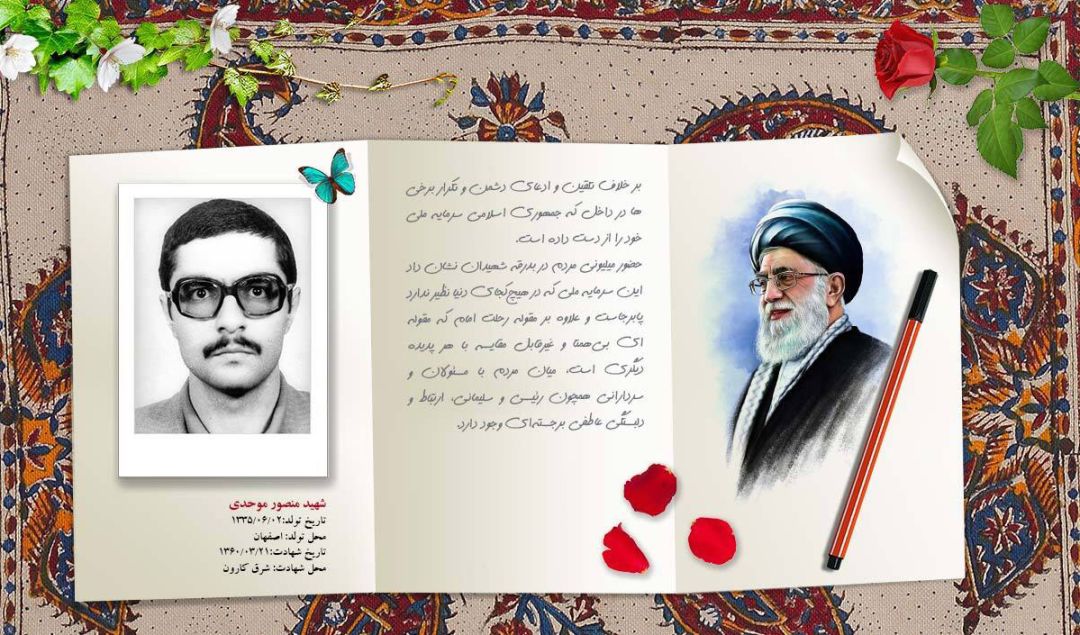 بر خلاف تلقین و ادعای دشمن و تکرار برخی
ها در داخل که جمهوری اسلامی سرمایه ملی
خود را از دست داده است.
حضور میلیونی مردم در بدرقه شهیدان نشان داد
این سرمایه ملی که در هیچ‌کجای دنیا نظیر ندارد
پابرجاست و علاوه بر مقوله رحلت امام که مقوله
ای بی‌همتا و غیرقابل مقایسه با هر پدیده
دیگری است، میان مردم با مسئولان و
سردارانی همچون رئیسی و سلیمانی، ارتباط و
دلبستگی عاطفی برجسته‌ای وجود دارد.
شهید منصور موحدی
تاریخ تولد: ۱۳۳۵/۰۶/۰۲
محل تولد: اصفهان
تاریخ شهادت: ۱۳۶۰/۰۳/۲۱
محل شهادت: شرق کارون